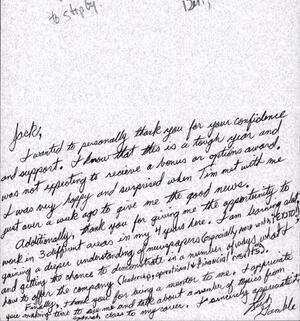 to stop by.
Jack,
I wanted to personally thank you for your confidence
and support. I know that this is a tough year and
was not expecting to receive a bonus or options award.
I was very happy and surprised when Tim met with me
just over a week ago to give me the good news.
Additionally, thank you for giving me the opportunity to
work in 3 different areas in my 4 years here. I am learning alot,
gaining a deeper understanding of newspapers (especially now with
and getting the chance to demonstrate in a number of ways what I
have to offer the company (leadership, operational & financial results).
Finally, thank you for being a mentor to me. I appreciate
you making time to see me and talk about a number of topics from
close to my career. I sincerely appreciate
Gamble